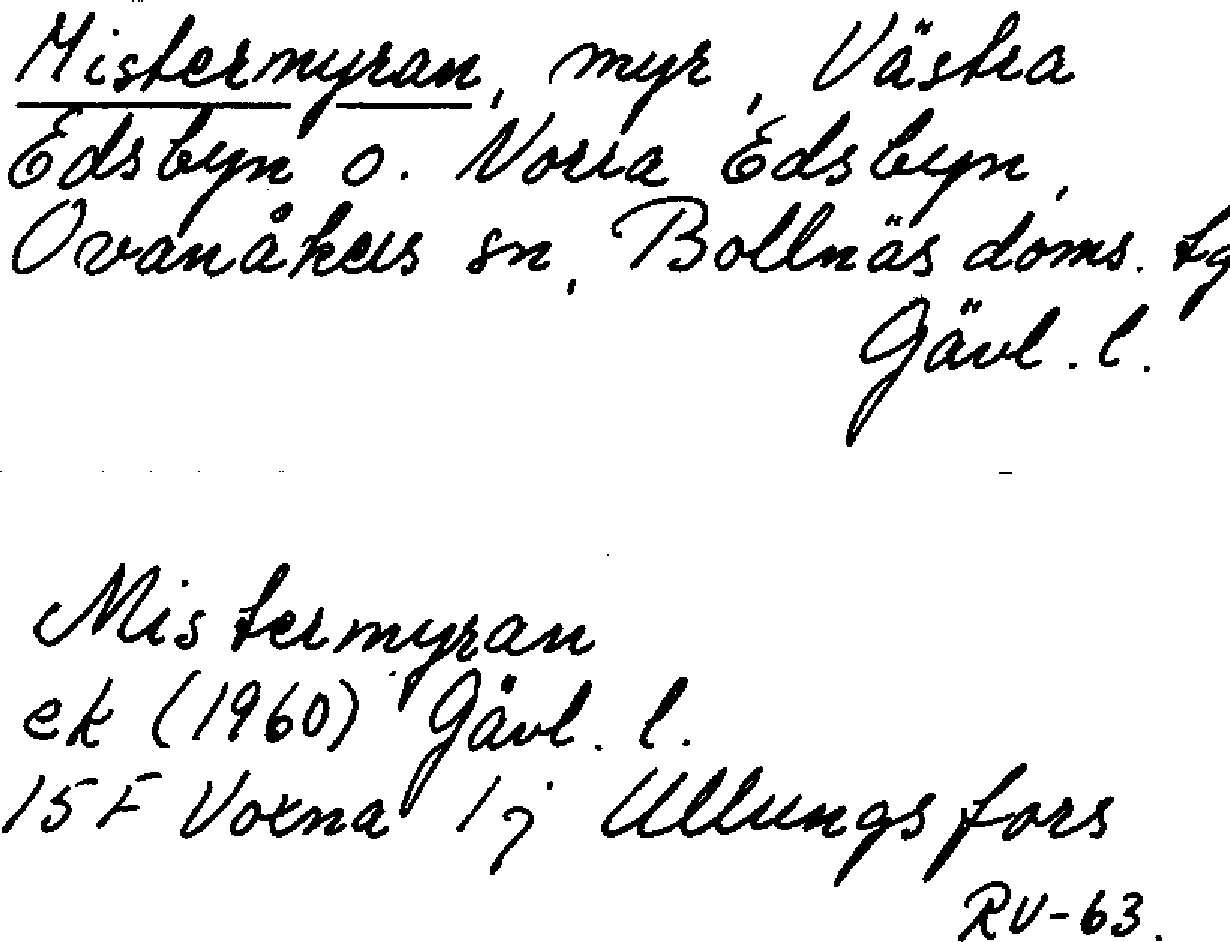 Mistermyran, myr, Västra
Edsbyn o. Norra Edsbyn,
Ovanåkers sn, Bollnäs doms. tg
Gävl. l.
Mistermyran
ek (1960) Gävl. l.
15 F Voxna 1 j Ullungsfors
RV-63.